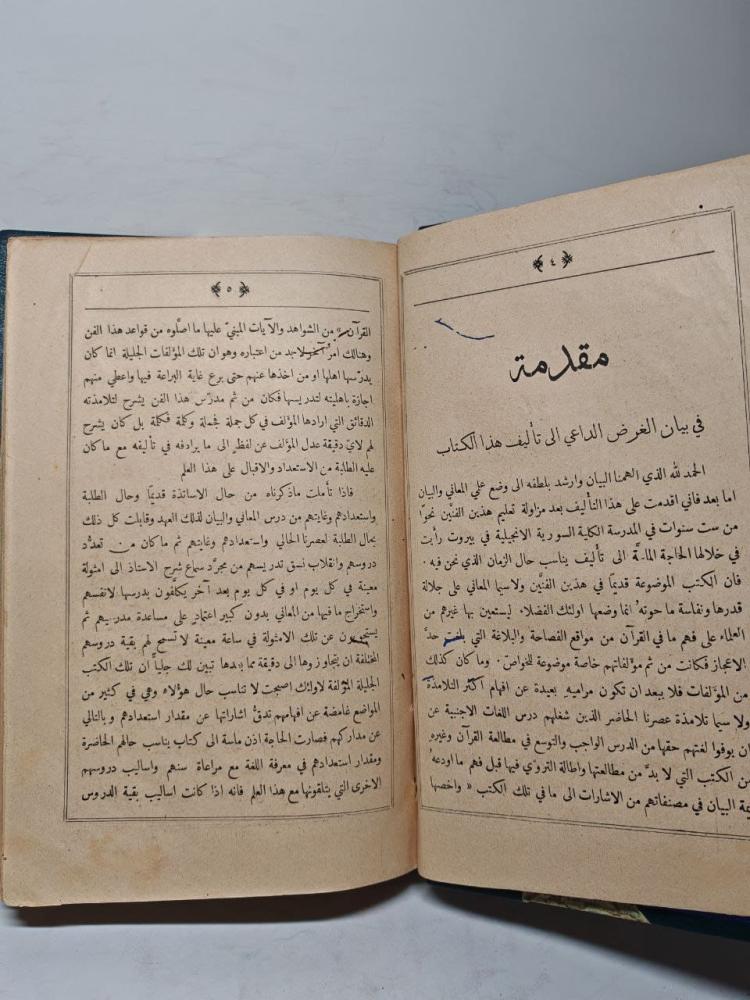 ٤
مقدمة
في بيان الغرض الداعي الى تأليف هذا الكتاب
الحمد لله الذي الهمنا البيان وارشد بلطفه الى وضع علي المعاني والبيان
اما بعد فاني اقدمت على هذا التأليف بعد مزاولة تعليم هذين الفنَّين نحوًا
من ست سنوات في المدرسة الكلية السورية الانجيلية في بيروت رأيت
في خلالها الحاجة الماسَّة الى تأليف يناسب حال الزمان الذي نحن فيه ٠
فان الكتب الموضوعة قديمًا في هذين الفنَّين ولاسيما المعاني على جلالة
قدرها ونفاسة ما حوته ُ انما وضعها اولئك الفضلاء ليستعين بها غيرهم من
العلماء على فهم ما في القرآن من مواقع الفصاحة والبلاغة التي بلغت حدَّ
الاعجاز فكانت من ثم مؤلفاتهم خاصة موضوعة للخواصّ ٠ وما كان كذلك
من المؤلفات فلا يبعد ان تكون مراميهِ بعيدة عن افهام اكثر التلامذة
ولا سيما تلامذة عصرنا الحاضر الذين شغلهم درس اللغات الاجنبية عن
ان يوفوا لغتهم حقها من الدرس الواجب والتوسع في مطالعة القرآن وغيره
من الكتب التي لا بدَّ من مطالعتها واطالة التروّي فيها قبل فهم ما اودعه ُ
البيان في مصنفاتهم من الاشارات الى ما في تلك الكتب « واخصها
٥
القرآن » من الشواهد والآيات المبنيّ عليها ما اصَّلوه من قواعد هذا الفن
وهنالك امرٌ آخر لابد من اعتباره وهو ان تلك المؤلفات الجليلة انما كان
يدرّسها اهلها او من اخذها عنهم حتى برع غاية البراعة فيها واعطي منهم
اجازة باهليته لتدريسها فكان من ثم مدرّس هذا الفن يشرح لتلامذته
الدقائق التي ارادها المؤلف في كل جملة فجملة وكلمة فكلمة بل كان يشرح
لهم لايّ دقيقة عدل المؤلف عن لفظٍ الى ما يرادفه في تأليفه مع ما كان
عليه الطلبة من الاستعداد والاقبال على هذا العلم
فاذا تأملت ماذكرناه من حال الاساتذة قديمًا وحال الطلبة
واستعدادهم وغايتهم من درس المعاني والبيان لذلك العهد وقابلت كل ذلك
بحال الطلبة لعصرنا الحالي واستعدادهم وغايتهم ثم ماكان من تعدُّد
دروسهم وانقلاب نسق تدريسهم من مجرّد سماع شرح الاستاذ الى امثولة
معينة في كل يوم او في كل يوم بعد آخر يكلَّفون بدرسها لانفسهم
واستخراج ما فيها من المعاني بدون كبير اعتمادٍ على مساعدة مدرسيهم ثم
يستمعون عن تلك الامثولة في ساعة معينة لا تسمح لهم بقية دروسهم
المختلفة ان يتجاوزوها الى دقيقة مما بعدها تبين لك جليًّا ان تلك الكتب
الجليلة المؤلفة لاولئك اصبحت لا تناسب حال هؤلاء وهي في كثير من
المواضع غامضة عن افهامهم تدقُّ اشاراتها عن مقدار استعدادهم وبالتالي
عن مداركهم فصارت الحاجة اذن ماسة الى كتاب يناسب حالهم الحاضرة
ومقدار استعدادهم في معرفة اللغة مع مراعاة سنهم واساليب دروسهم
الاخرى التي يتلقونها مع هذا العلم فانه اذا كانت اساليب بقية الدروس